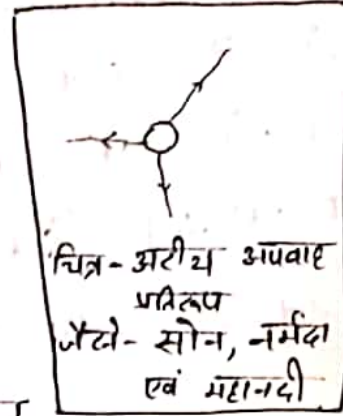 चित्र - अरीय अपवाह
प्रतिरूप
जैसे - सोन, नर्मदा
एवं महानदी